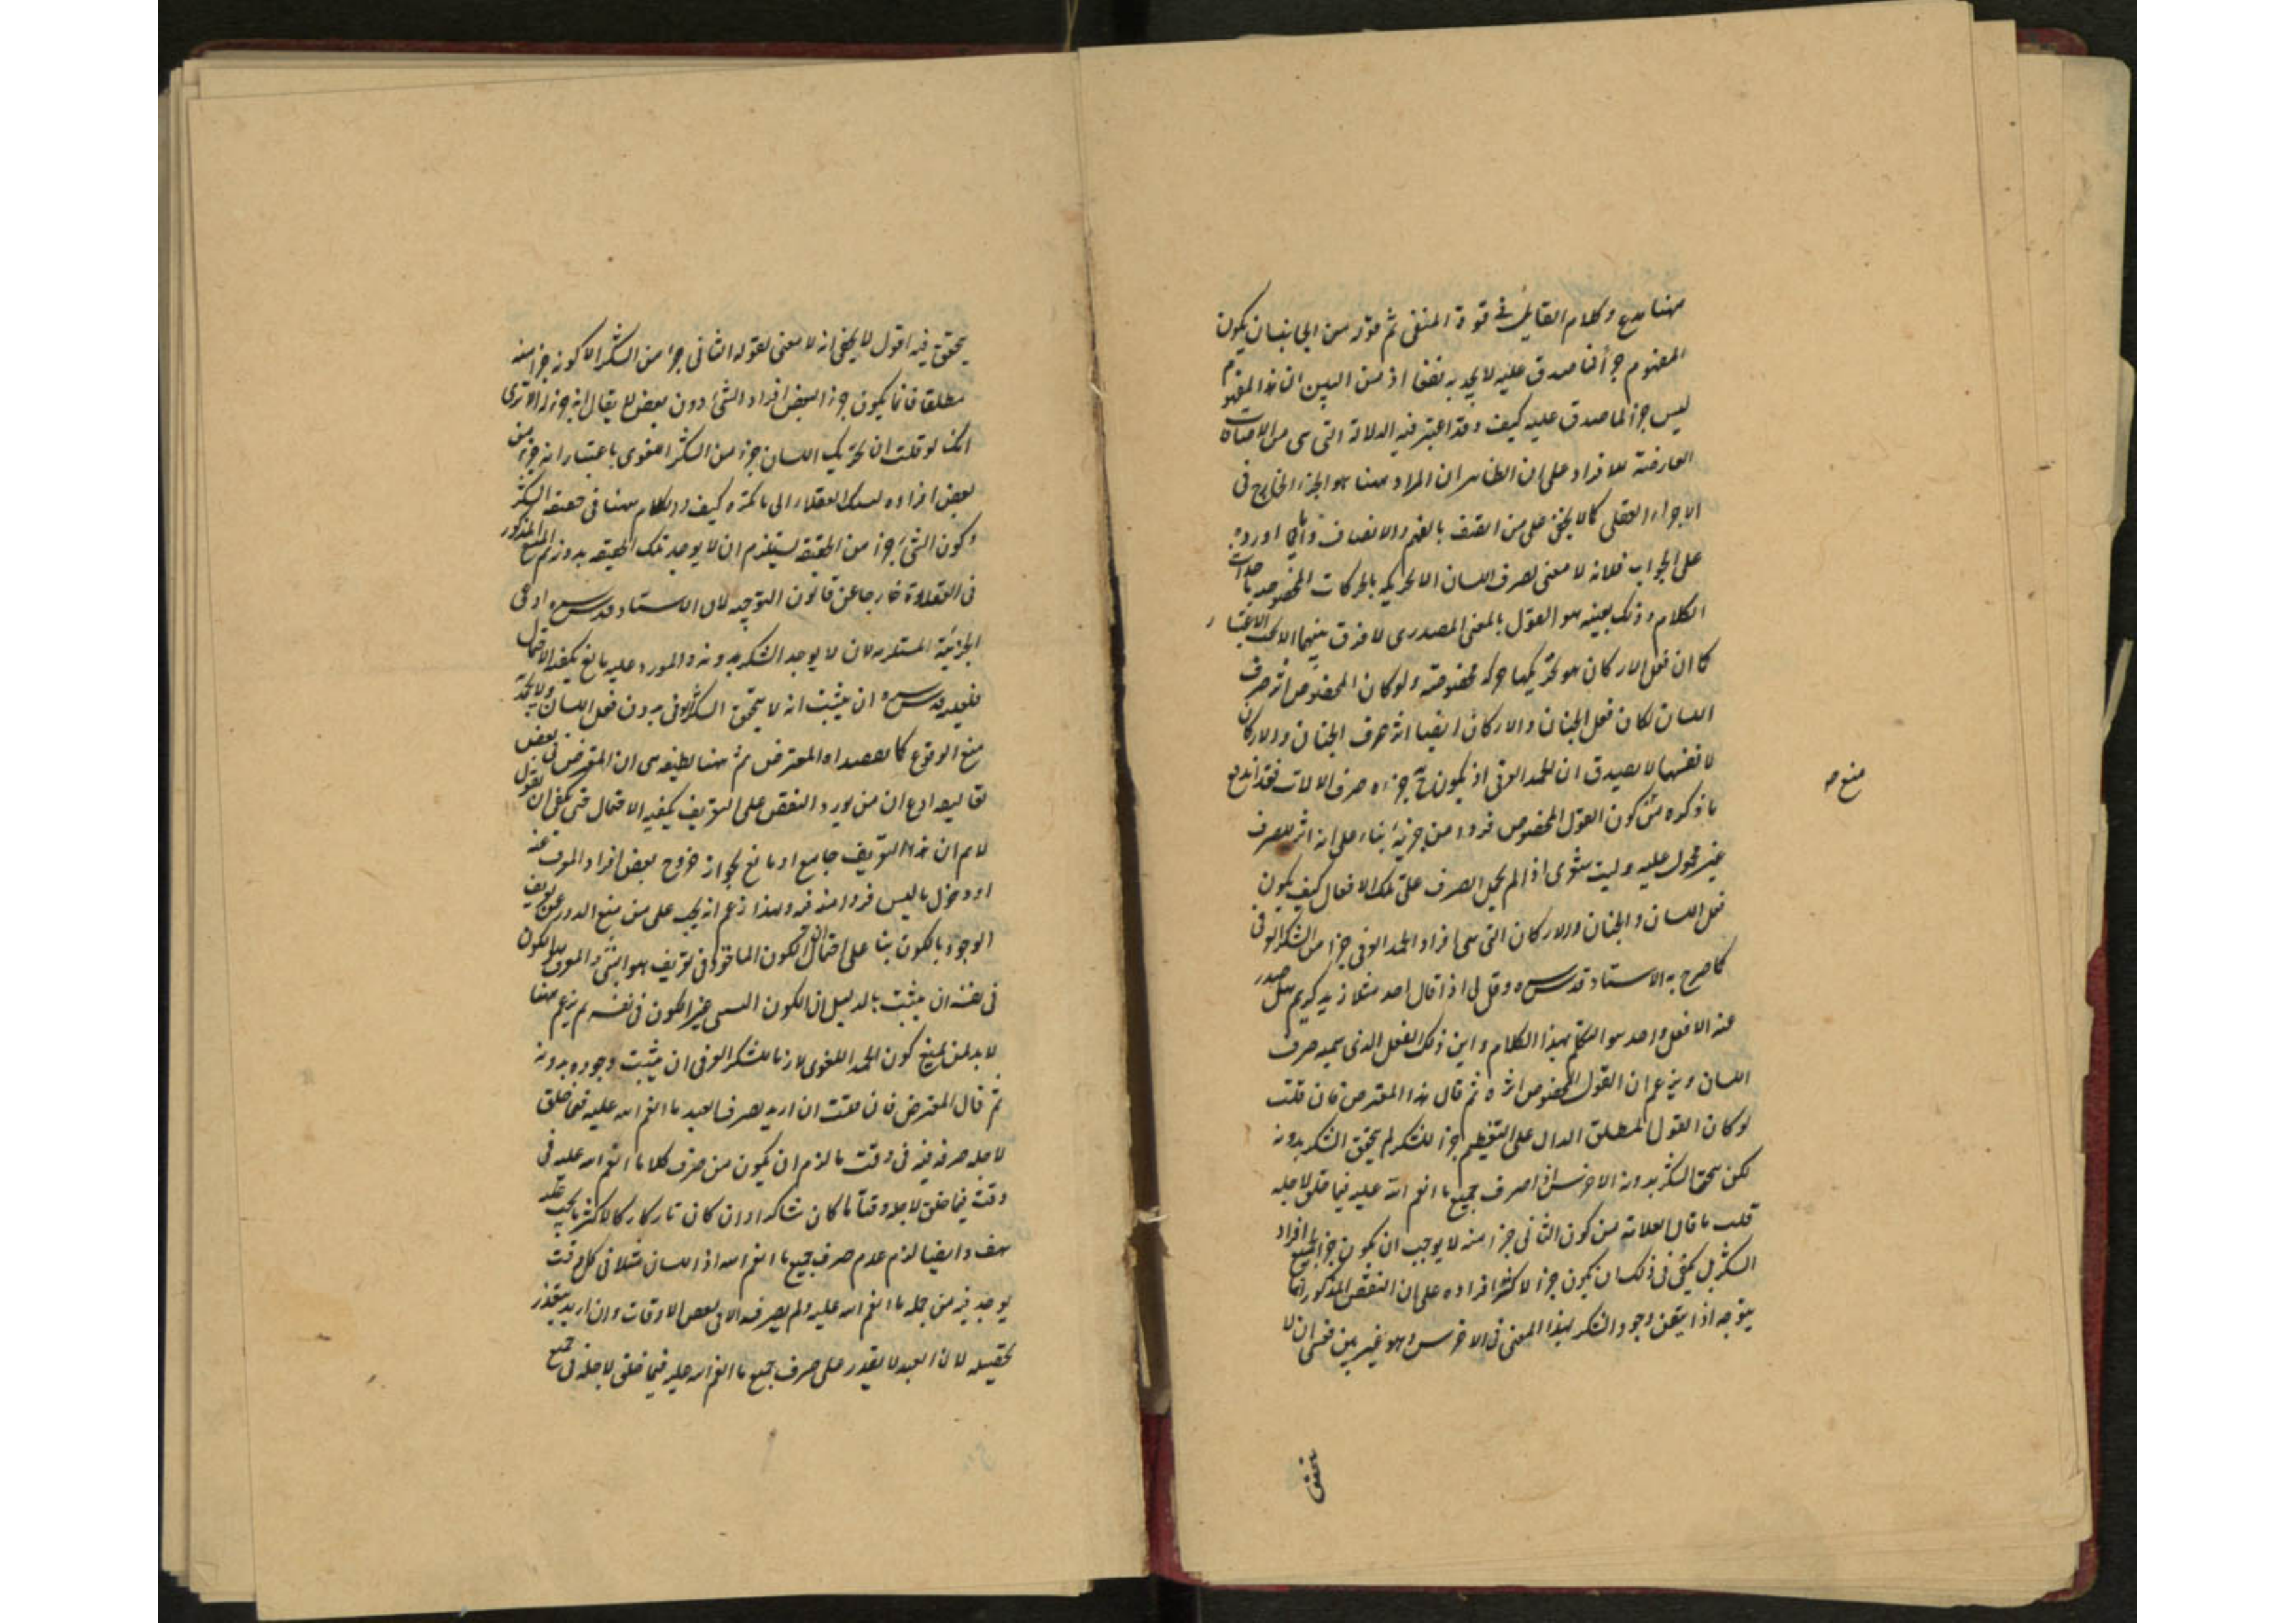 ههنا مدع وكلام القايل في قوة المنع ثم قوله من الجانبان يكون
المفهوم جزأ لما صدق عليه لا يجديه نفعا اذ من البين ان هذا المفهوم
ليس جزأ لما صدق عليه كيف وقد اعتبر فيه الدلالة التى هى من الاضافات
العارضة للافراد على ان الظاهر ان المراد ههنا هو الجزء الخارجى
الاجزاء العقلى كما لا يخفى على من اتصف بالفهم والانصاف واما ما اورده
على الجواب فلانه لا معنى لصرف اللسان الا تحريكه بالحركات المخصوصة
الكلام وذلك بعينه هو القول بالمعنى المصدرى لا فرق بينهما الا بحسب الاعتبار
كما ان فعل الاركان هو تحريكها حركة مخصوصة ولو كان المخصوص اثر صرف
اللسان لكان فعل الجنان والاركان ايضا اثر صرف الجنان والاركان
لا نفسها لا يصدق ان الحمد العرفى اذ يكون ح جزءه صرف الالات فقد اندفع
ما ذكره من كون القول المخصوص فردا من جزئه بناء على انه اثر للصرف
غير محمول عليه وليت شعرى اذا لم يحمل الصرف على تلك الافعال كيف يكون
فعل اللسان والجنان والاركان التى هى افراد الحمد العرفى جزأ من الشكر العرفى
كما صرح به الاستاد قدس سره وقل لى اذا قال احد مثلا زيد كريم هل صدر
عنه الا فعل واحد هو التكلم بهذا الكلام واين ذلك الفعل الذى يسميه صرف
اللسان ويزعم ان القول المخصوص اثره ثم قال هذا المعترض فان قلت
لو كان القول المطلق الدال على التعظيم جزأ للشكر لم يتحقق الشكر بدونه
لكن يتحقق الشكر بدونه الاخرس اذا صرف جميع ما انعم الله عليه فيما خلق لاجله
قلت ما قال العلامة من كون الثانى جزأ منه لا يوجب ان يكون جزأ لجميع افراد
الشكر بل يكفى فى ذلك ان يكون جزأ لاكثر افراده على ان النقض المذكور انما
يتوجه اذا تيقن وجود الشكر بهذا المعنى فى الاخرس وهو غير بين فعسى ان لا
منع صه
يتحقق
يتحقق فيه اقول لا يخفى انه لا معنى لقوله الثانى جزأ من الشكر الا كونه جزأ منه
مطلقا فانما يكون جزأ لبعض افراد الشئ دون بعض لا يقال انه جزء له الا ترى
انك لو قلت ان تحريك اللسان جزء من الشكر اللغوى باعتبار انه جزء من
بعض افراده كيف والكلام ههنا فى حقيقة الشكر
وكون الشئ جزأ من الحقيقة يستلزم ان لا يوجد تلك الحقيقة بدونه ثم المنع المذكور
فى العلاوة خارجا عن قانون التوجيه لان الاستاد قدس سره ادعى
الجزئية المستلزمة لان لا يوجد الشكر بدونه والمورد عليه مانع يكفيه الاحتمال
فعليه قدس سره ان يثبت انه لا يتحقق الشكر العرفى بدون فعل اللسان ولا يجديه
منع الوقوع كما قصده المعترض ثم ههنا لطيفة هى ان المعترض فى بعض
تعاليقه ادعى ان من يورد النقض على التعريف يكفيه الاحتمال حتى يكفى ان يقول
لا نم ان هذا التعريف جامع او مانع لجواز خروج بعض افراد المعرف عنه
او دخول ما ليس فردا منه فيه ولهذا زعم انه يجب على من منع الدور عن تعريف
الوجود بالكون بناء على احتمال ان يكون الكون الماخوذ فى تعريف هو النسبى والمعرف هو الكون
فى نفسه ان يثبت بالدليل ان الكون النسبى غير الكون فى نفسه ثم يزعم ههنا
لا بد لمن يمنع كون الحمد اللغوى لازما للشكر العرفى ان يثبت وجوده بدونه
ثم قال المعترض فان قلت ان اريد بصرف العبد ما انعم الله عليه فيما خلق
لاجله صرفه فيه فى وقت ما لزم ان يكون من صرف كلا ما انعم الله عليه فى
وقت فيما خلق لاجله وقتا ما كان شاكرا وان كان تاركا لاكثر ما يجب عليه
هف وايضا لزم عدم صرف جميع ما انعم الله اذ اللسان مثلا فى كل وقت
يوجد فيه من جملة ما انعم الله عليه ولم يصرفه الا فى بعض الاوقات وان اريد يتعذر
تحقيقه لان العبد لا يقدر على صرف جميع ما انعم الله عليه فيما خلق لاجله فى جميع